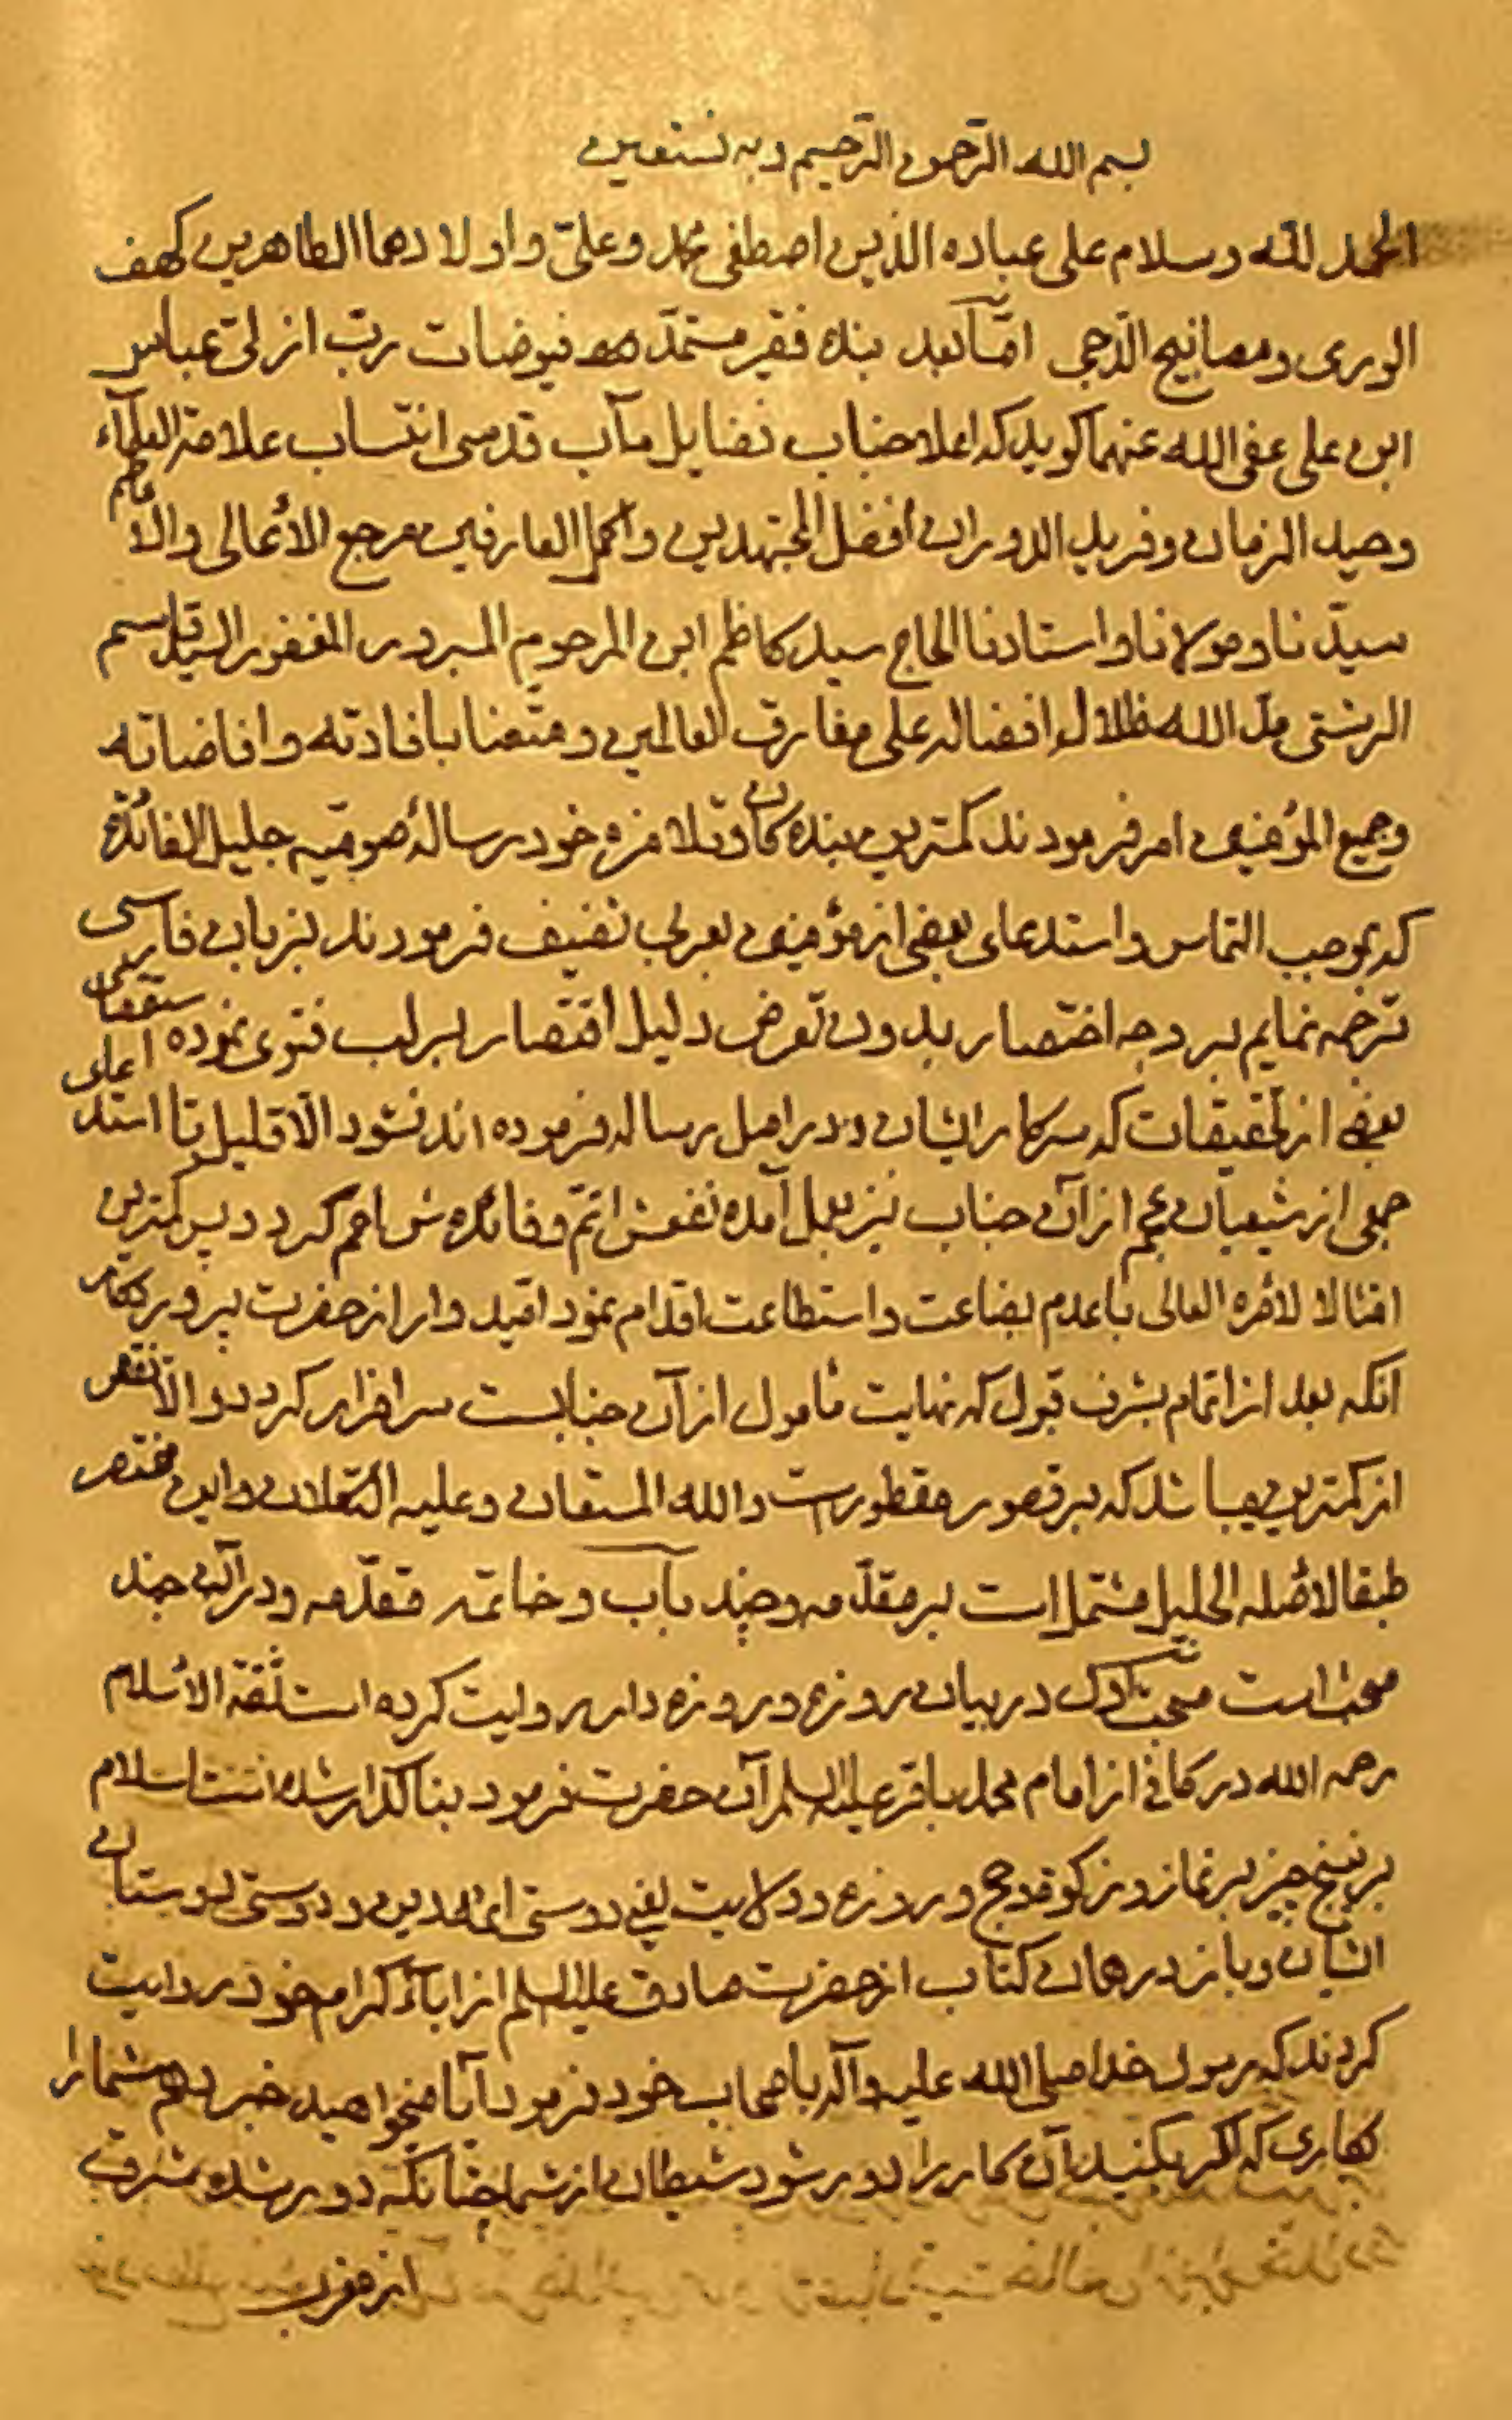 بسم الله الرّحمن الرّحیم وبه نستعین
الحمد للّه وسلام علی عباده الذین اصطفی محمّد وعلیّ واولادهما الطاهرین کهف
الوری ومصابیح الدّجی امّا بعد بنده فقیر مستمدّ فیوضات ربّ ازلیّ عباس
ابن علی عفی الله عنهما کوید که اعلا جناب فضایل مآب قدسی انتساب علامة العلمآء
وحید الزمان وفرید الدوران افضل المجتهدین واکمل العارفین مرجع الأعالی والاعاظم
سیّدنا ومولانا واستادنا الحاج سید کاظم ابن المرحوم المبرور المغفور السید قاسم
الرشتی مدّ الله ظلال افضاله علی مفارق العالمین ومتّعنا بافادته وافاضاته
وجمیع المؤمنین امر فرمودند کمترین بندکان وتلامزه خود رسالهٔ صومیّه جلیل الفائدة
که بموجب التماس واستدعای بعضی از مؤمنین بعربی تصنیف فرمودند بزبان فارسی
ترجمه نمایم بر وجه اختصار بدون تعرض دلیل اقتصار بر لب فتوی نموده متعرض
بعضی از تحقیقات که سرکار ایشان در اصل رساله فرموده اند نشود الّا قلیل تا استدعای
جمعی از شیعیان عجم از آن جناب نیز بعمل آمده نفعش اتمّ وفائده ش اعم کردد پس کمترین
امتثالا لأمره العالی باعدم بضاعت واستطاعت اقدام نمود امیدوار از حضرت پروردکار
آنکه بعد از اتمام بشرف قبول که نهایت مأمول از آن جنابست سرافراز کردد والّا نقص
از کمترین میباشد که بر قصور مفطور است والله المستعان وعلیه التکلان واین مختصر
طبقا لأصله الجلیل مشتمل است بر مقدّمه وچند باب وخاتمه مقدّمه ودر آن چند
مبحث است مبحث اوّل در بیان روزه وروزه دار روایت کرده است ثقة الأسلام
رحمه الله در کافی از امام محمد باقر علیه السلم آن حضرت فرمود بنا کذار شده است اسلام
بر پنج چیز بر نماز وزکوة وحج وروزه وولایت یعنی دوستی ائمه دین ودوستی دوستان
ایشان وباز در همان کتاب از حضرت صادق علیه السلم از ابآء کرام خود روایت
کردند که رسول خدا صلی الله علیه وآله باصحاب خود فرمود آیا میخواهید خبر دهم شما را
بکاری که اکر بکنید آن کار را دور شود شیطان از شما چنانکه دور شده مشرق
از مغرب